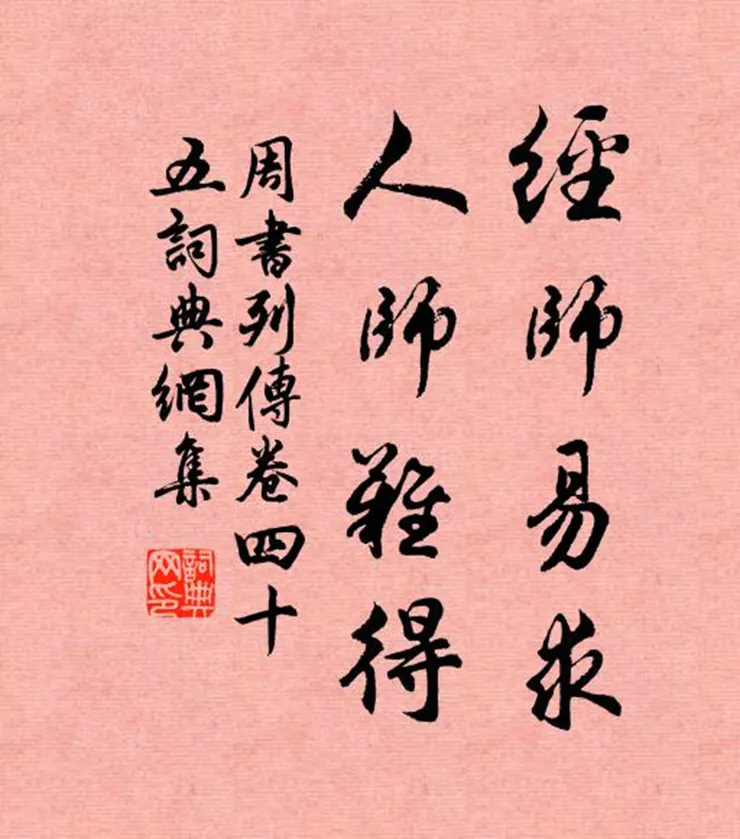 經師易求
人師難得
周書列傳卷四十
五詞典網集
詞典網印